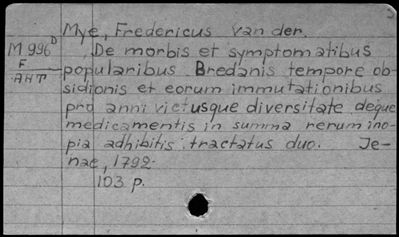 Mye, Fredericus van der.
M 996 D
F
AHT
De morbis et symptomatibus
popularibus Bredanis tempore ob-
sidionis et eorum immutationibus
pro anni victusque diversitate deque
medicamentis in summa rerum ino-
pia adhibitis tractatus duo. Je-
nae, 1792.
103 p.